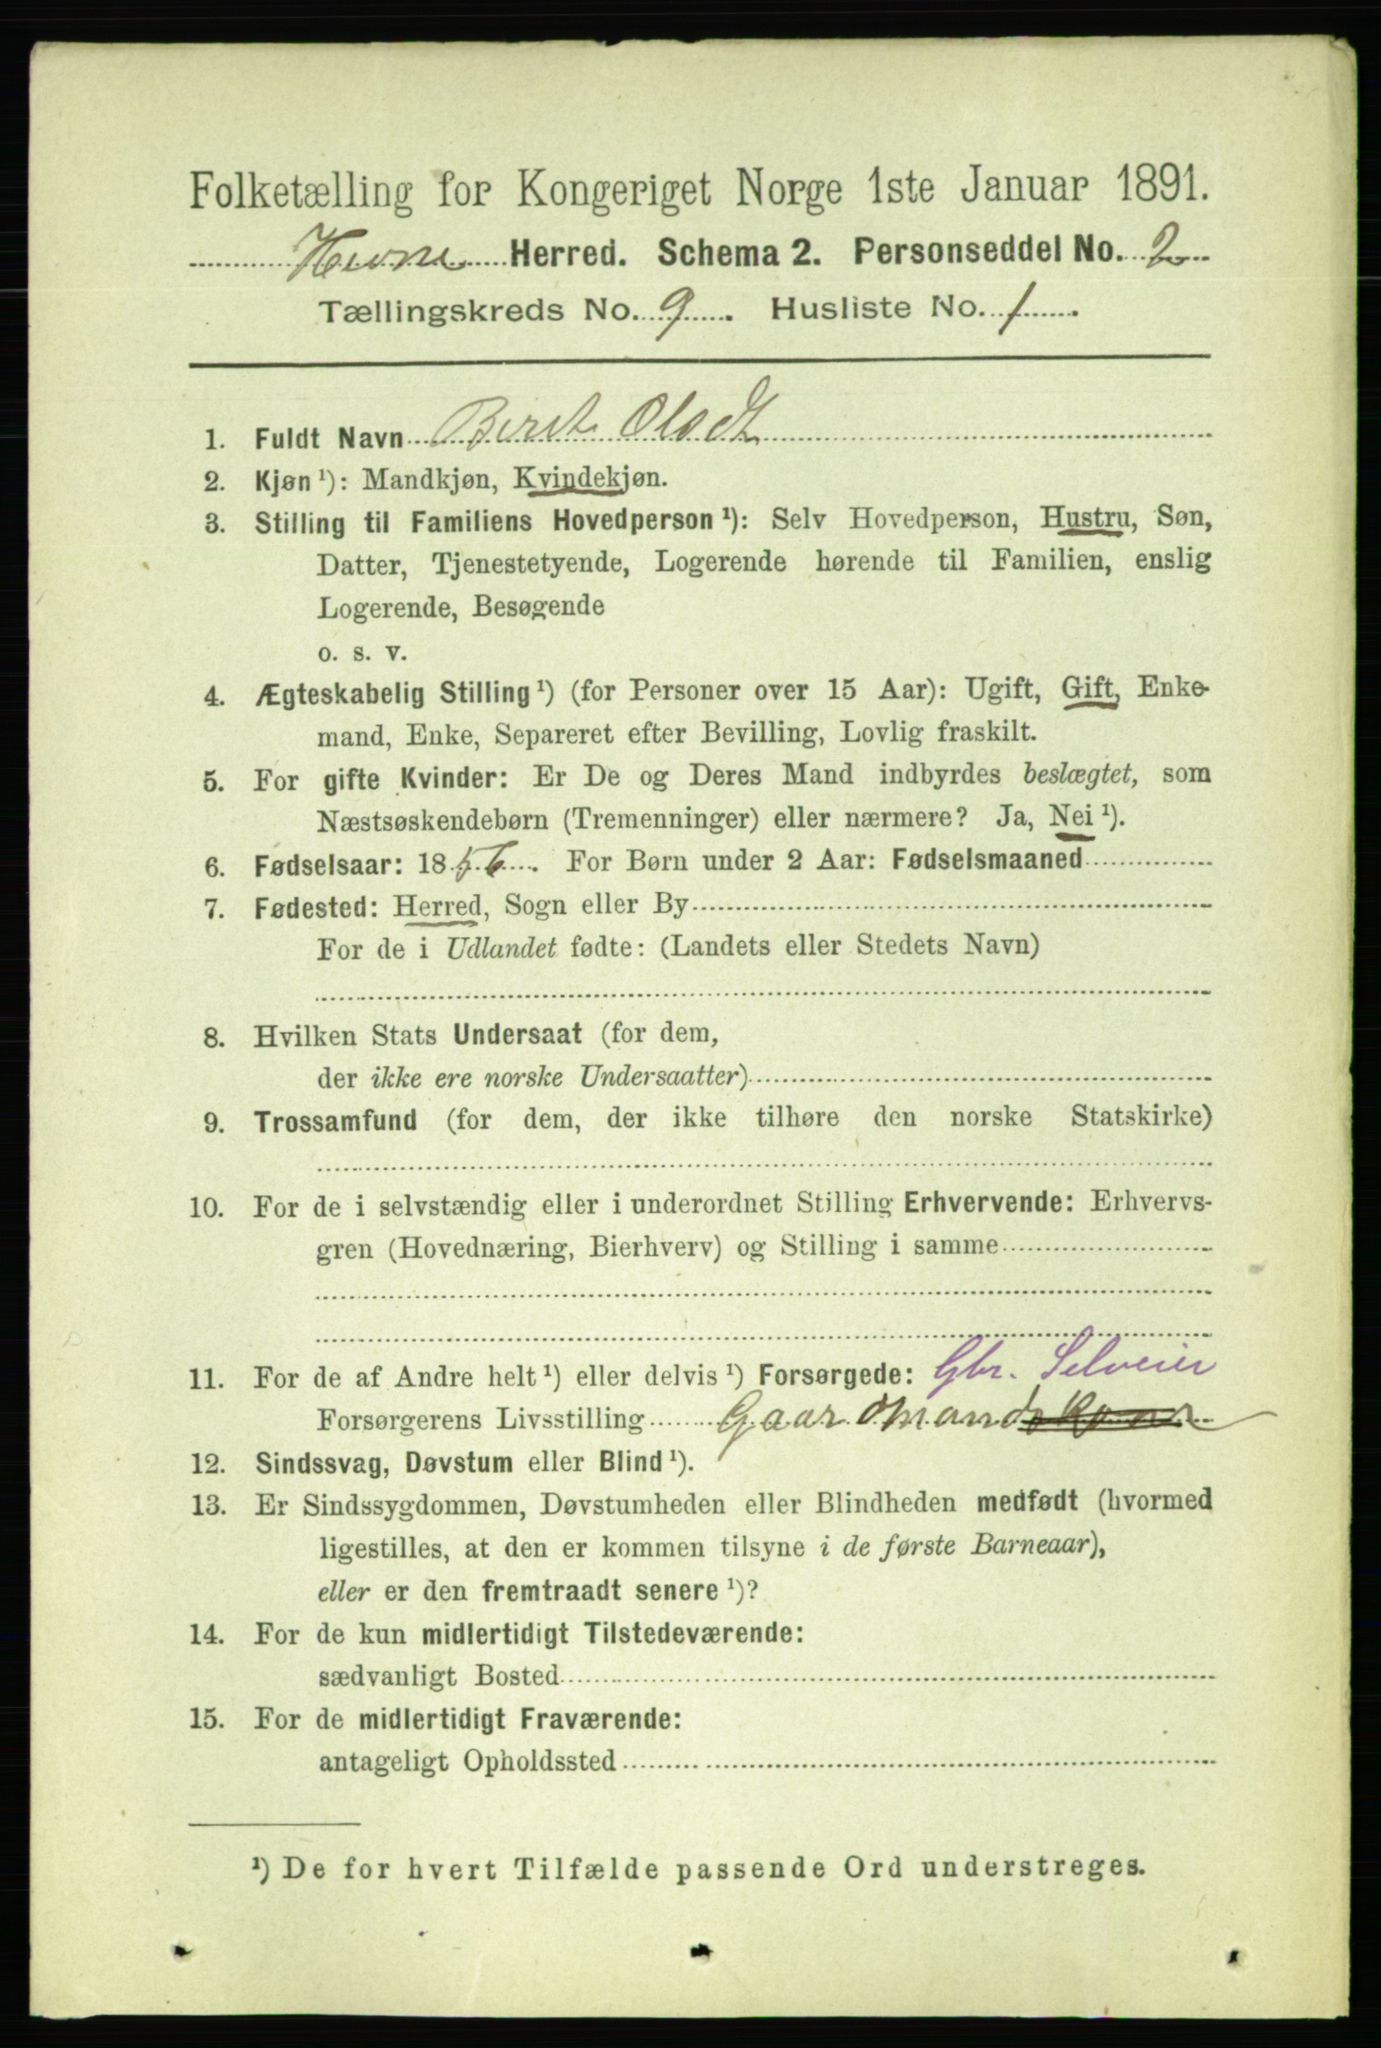 Folketælling for Kongeriget Norge 1ste Januar 1891.
Hevne Herred. Schema 2. Personseddel No. 2
Tællingskreds No. 9. Husliste No. 1.
1. Fuldt Navn Berit Olsdt
2. Kjøn ¹): Mandkjøn, Kvindekjøn.
3. Stilling til Familiens Hovedperson ¹): Selv Hovedperson, Hustru, Søn,
Datter, Tjenestetyende, Logerende hørende til Familien, enslig
Logerende, Besøgende
o. s. v.
4. Ægteskabelig Stilling ¹) (for Personer over 15 Aar): Ugift, Gift, Enke-
mand, Enke, Separeret efter Bevilling, Lovlig fraskilt.
5. For gifte Kvinder: Er De og Deres Mand indbyrdes beslægtet, som
Næstsøskendebørn (Tremenninger) eller nærmere? Ja, Nei ¹).
6. Fødselsaar: 1856. For Børn under 2 Aar: Fødselsmaaned
7. Fødested: Herred, Sogn eller By
For de i Udlandet fødte: (Landets eller Stedets Navn)
8. Hvilken Stats Undersaat (for dem,
der ikke ere norske Undersaatter)
9. Trossamfund (for dem, der ikke tilhøre den norske Statskirke)
10. For de i selvstændig eller i underordnet Stilling Erhvervende: Erhvervs-
gren (Hovednæring, Bierhverv) og Stilling i samme
11. For de af Andre helt ¹) eller delvis ¹) Forsørgede: Gbr. Selveier
Forsørgerens Livsstilling Gaardmandskone
12. Sindssvag, Døvstum eller Blind ¹).
13. Er Sindssygdommen, Døvstumheden eller Blindheden medfødt (hvormed
ligestilles, at den er kommen tilsyne i de første Barneaar),
eller er den fremtraadt senere ¹)?
14. For de kun midlertidigt Tilstedeværende:
sædvanligt Bosted
15. For de midlertidigt Fraværende:
antageligt Opholdssted
¹) De for hvert Tilfælde passende Ord understreges.